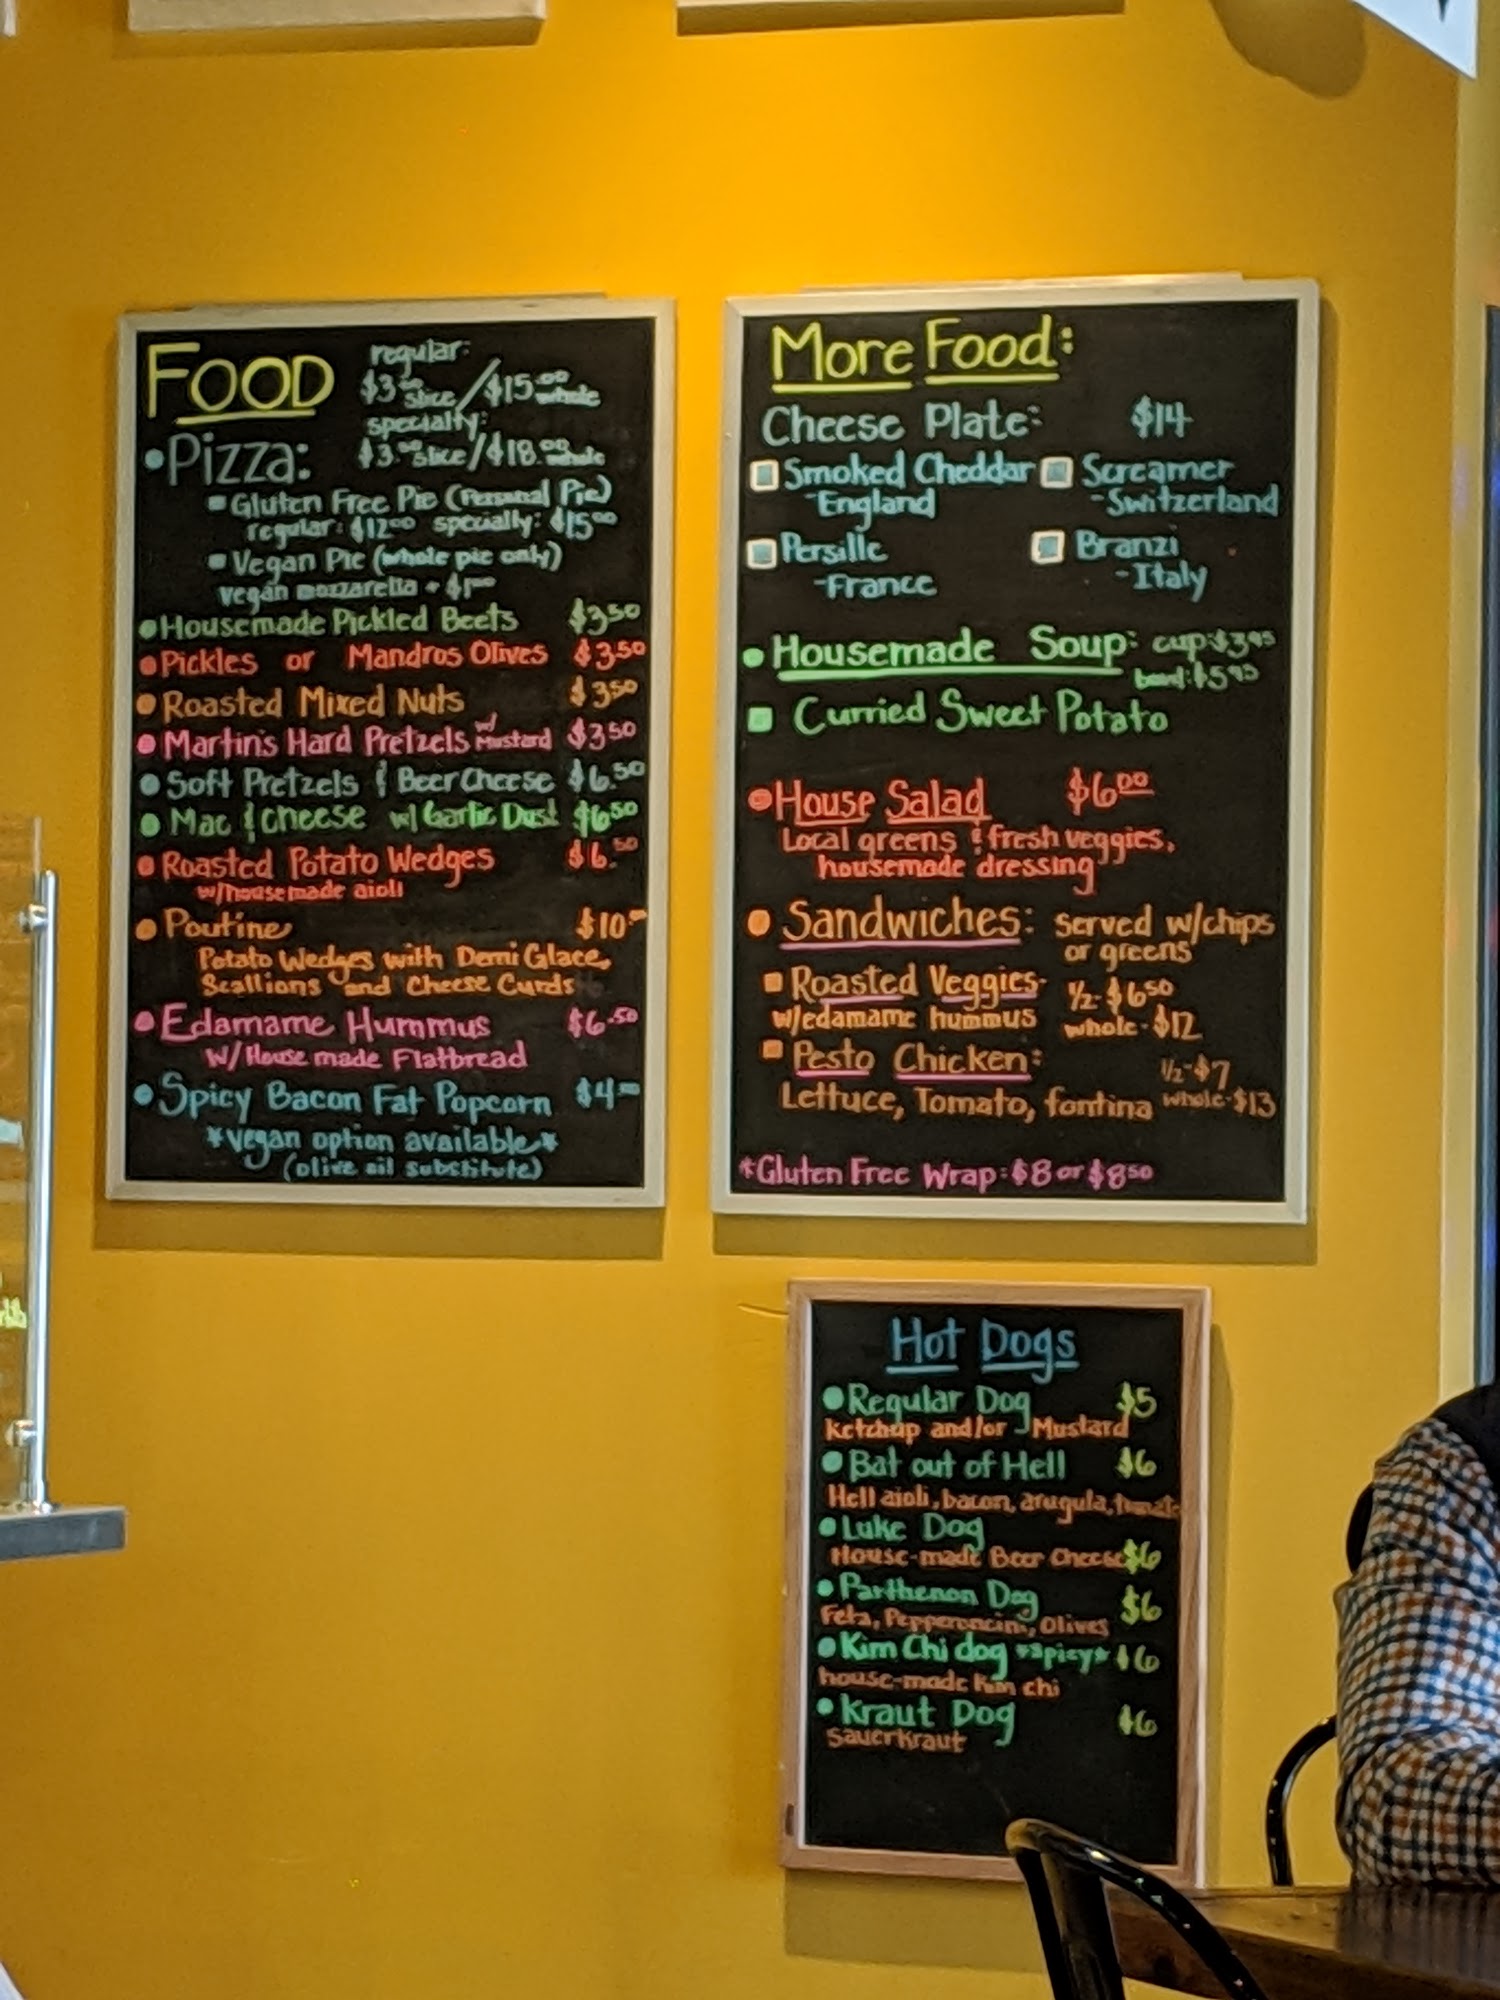 FOOD
regular:
$3.00 slice/$15.00 whole
specialty:
• Pizza: $3.00 slice/$18.00 whole
Gluten Free Pie (Personal Pie)
regular: $12.00 specially: $15.00
Vegan Pie (whole pie only)
vegan mozzarella + $1.00
• Housemade Pickled Beets $3.50
• Pickles or Mandros Olives $3.50
• Roasted Mixed Nuts $3.50
• Martin's Hard Pretzels w/ Mustard $3.50
• Soft Pretzels & Beer Cheese $6.50
• Mac & cheese w/ Garlic Dust $6.50
• Roasted Potato Wedges $6.50
w/housemade aioli
• Poutine $10.00
Potato Wedges with Demi Glace,
Scallions and Cheese Curds
• Edamame Hummus $6.50
w/House made Flatbread
• Spicy Bacon Fat Popcorn $4.00
*vegan option available*
(olive oil substitute)
More Food:
Cheese Plate: $14
Smoked Cheddar Screamer
-England -Switzerland
Persille Branzi
-France -Italy
• Housemade Soup: cup: $3.95
bowl: $5.95
Curried Sweet Potato
• House Salad $6.00
Local greens & fresh veggies,
housemade dressing
• Sandwiches: Served w/chips
or greens
Roasted Veggies- 1/2- $6.50
w/edamame hummus whole- $12
Pesto Chicken: 1/2-$7
Lettuce, Tomato, fontina whole-$13
*Gluten Free Wrap: $8 or $8.50
Hot Dogs
• Regular Dog $5
Ketchup and/or Mustard
• Bat out of Hell $6
Hell aioli, bacon, arugula,
• Luke Dog
House-made Beer Cheese $6
• Parthenon Dog $6
Feta, Pepperoncini, Olives
• Kim Chi dog *spicy* $6
house-made Kim chi
• Kraut Dog $6
Sauerkraut